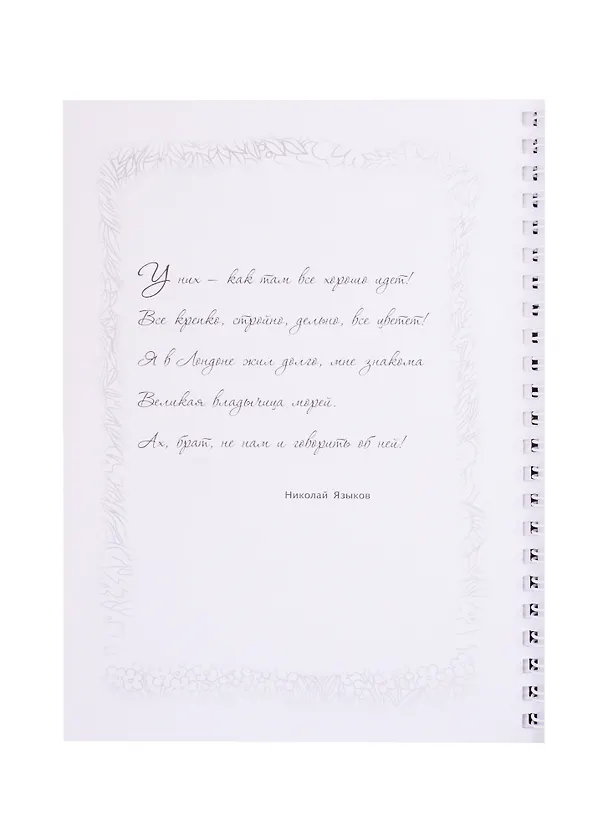 У них – как там все хорошо идет!
Все крепко, стройно, дельно, все цветет!
Я в Лондоне жил долго, мне знакома
Великая владычица морей.
Ах, брат, не нам и говорить об ней!
Николай Языков